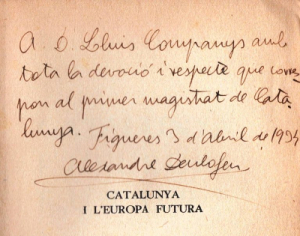 A. D. Lluis Companys amb
tota la devoció i respecte que corres
pon al primer magistrat de Cata-
lunya. Figueres 3 d'abril de 1934
Alexandre Deulofeu
CATALUNYA
I L'EUROPA FUTURA